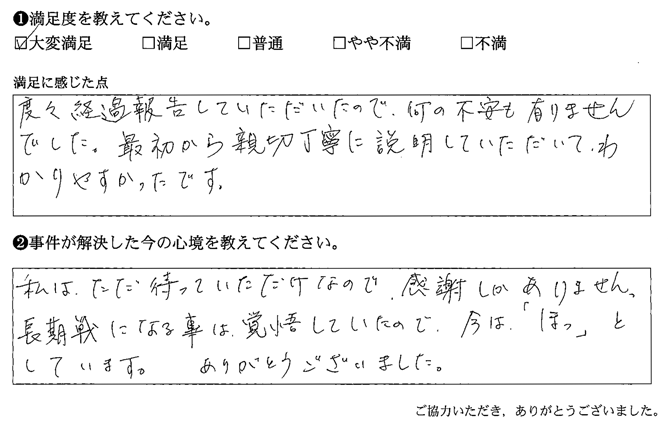 ❶満足度を教えてください。
☑大変満足 □満足 □普通 □やや不満 □不満
満足に感じた点
度々経過報告していただいたので、何の不安も有りません
でした。最初から親切丁寧に説明していただいて、わ
かりやすかったです。
❷事件が解決した今の心境を教えてください。
私は、ただ待っていただけなので、感謝しかありません。
長期戦になる事は、覚悟していたので、今は、「ほっ」と
しています。 ありがとうございました。
ご協力いただき，ありがとうございました。